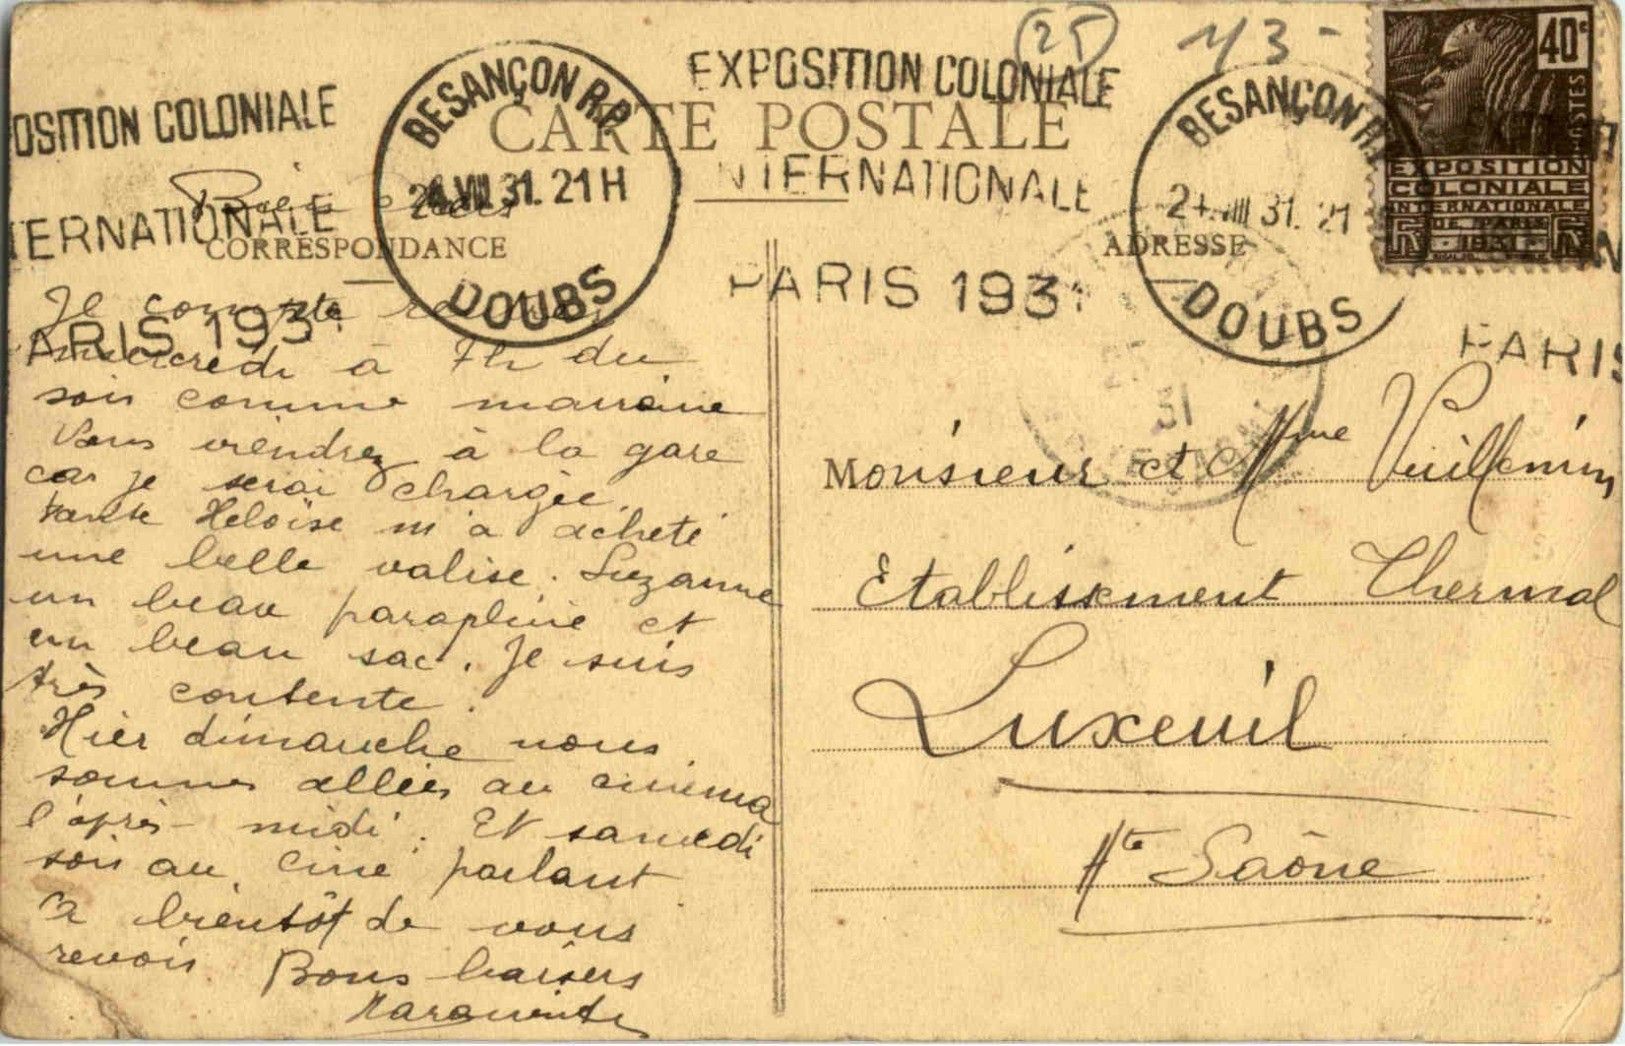 25
43-
EXPOSITION COLONIALE
INTERNATIONALE
PARIS 1931
OSITION COLONIALE
TERNATIONALE
PARIS 193
BESANÇON R.P.
24.VIII 31. 21H
DOUBS
BESANÇON R.
24.VIII 31. 21
DOUBS
PARIS
40c
POSTES
EXPOSITION
COLONIALE
INTERNATIONALE
DE PARIS
1931
31
CARTE POSTALE
CORRESPONDANCE
ADRESSE
Bien chers
Je compte rentrer
mercredi à 7h du
soir comme marraine
Vous viendrez à la gare
car je serai chargée.
tante Heloïse m'a acheté
une belle valise. Suzanne
un beau parapluie et
un beau sac. Je suis
très contente.
Hier dimanche nous
sommes allées au cinéma
l'après-midi. Et samedi
soir au ciné parlant
A bientôt de vous
revoir. Bons baisers
Marguerite
Monsieur et Mme Vuillemin
Etablissement Thermal
Luxeuil
Hte Saône